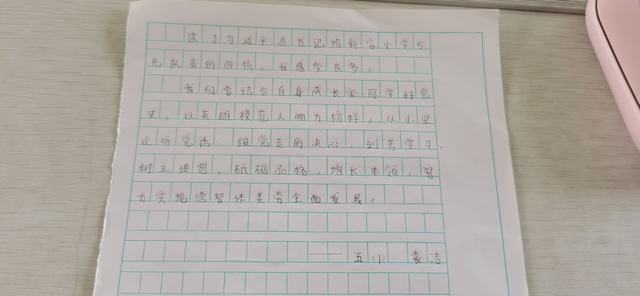 读了习近平总书记给新安小学少
先队员的回信，我感受良多。
我们要结合自身成长实际学好党
史，以英雄模范人物为榜样，从小坚
定听党话、跟党走的决心，刻苦学习，
树立理想，砥砺品格，增长本领，努
力实现德智体美劳全面发展。
——五小 袁洁